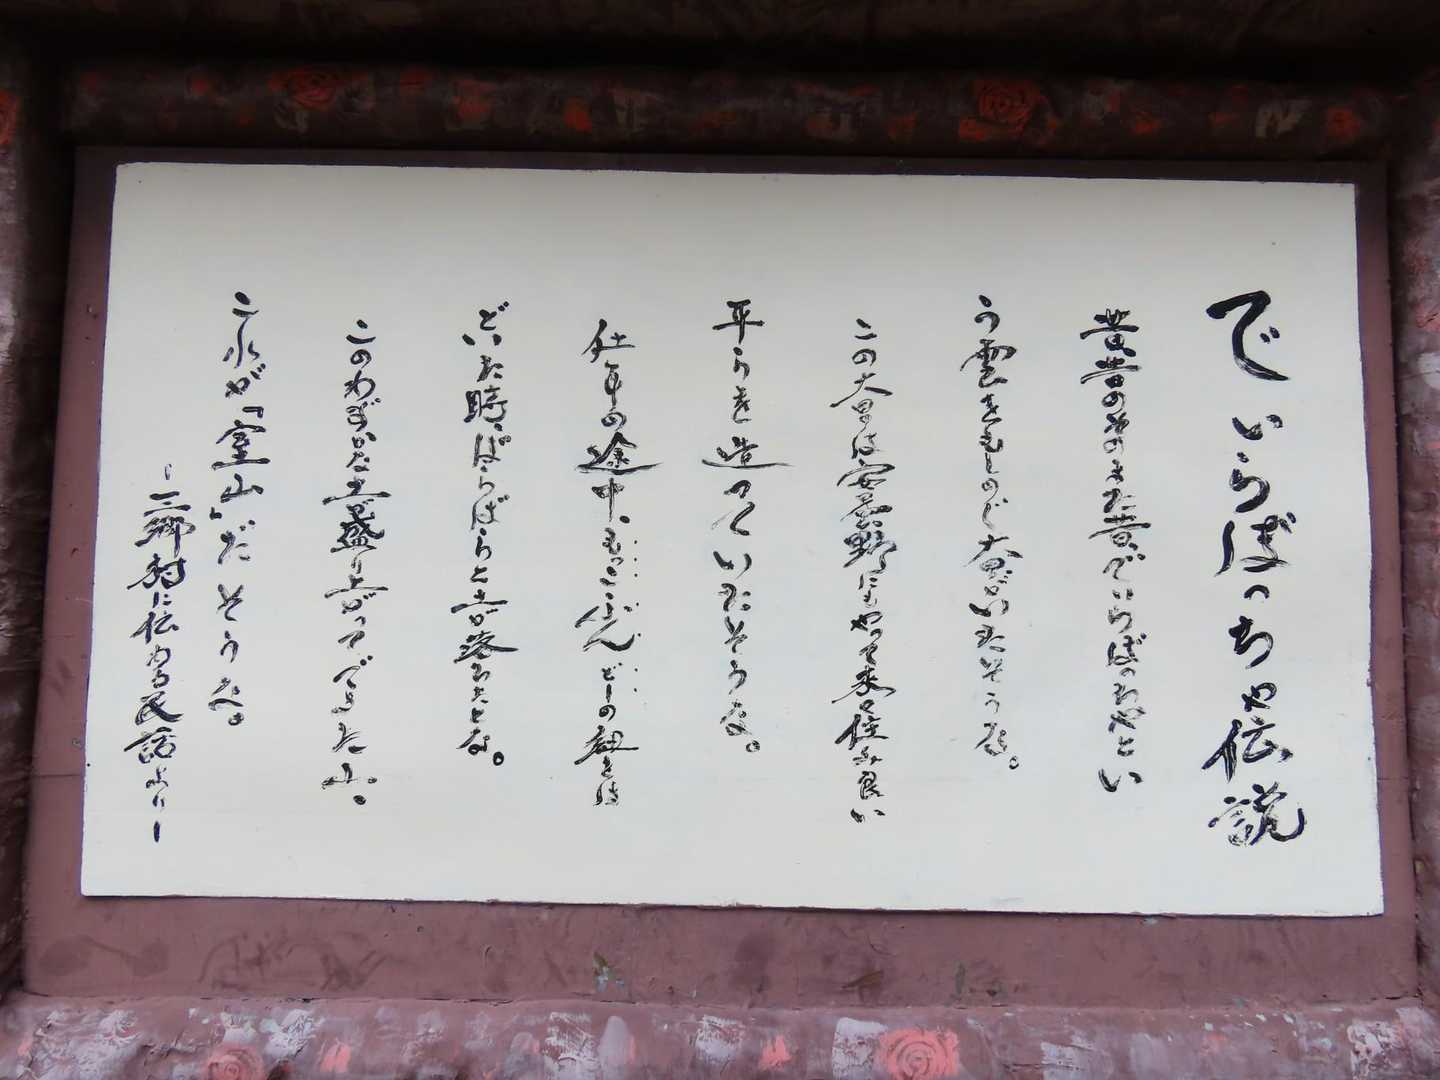 でいらぼっちゃ伝説
昔昔のそのまた昔、でいらぼっちゃとい
う雲をもしのぐ大男がいたそうな。
この大男は安曇野にもやって来て住み良い
平らを造っていたそうな。
仕事の途中、もっこふんどしの紐をほ
どいた時、ぼらぼらっと土が落ちたとな。
このわずかな土が盛り上がってできた山。
これが『室山』だそうな。
ー三郷村に伝わる民話よりー